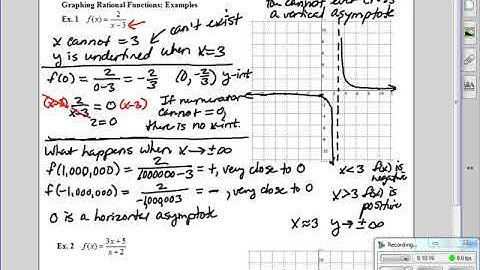 Graphing Rational Functions: Examples
Ex. 1 f(x) = 2/(x-3) can't exist
x cannot = 3
y is undefined when x=3
f(0) = 2/(0-3) = -2/3 (0, -2/3) y-int
(x-3) 2/(x-3) = 0 (x-3)
2=0
If numerator
cannot = 0,
there is no x-int.
What happens when x→±∞
f(1,000,000) = 2/(1000000-3) = +, very close to 0
f(-1,000,000) = 2/(-1000003) = -, very close to 0
0 is a horizontal asymptote
You cannot ever cross
a vertical asymptote
x<3 f(x) is
negative
x>3 f(x) is
positive
x≈3 y→±∞
Ex. 2 f(x) = (3x+5)/(x+2)
Recording...
0:10:16